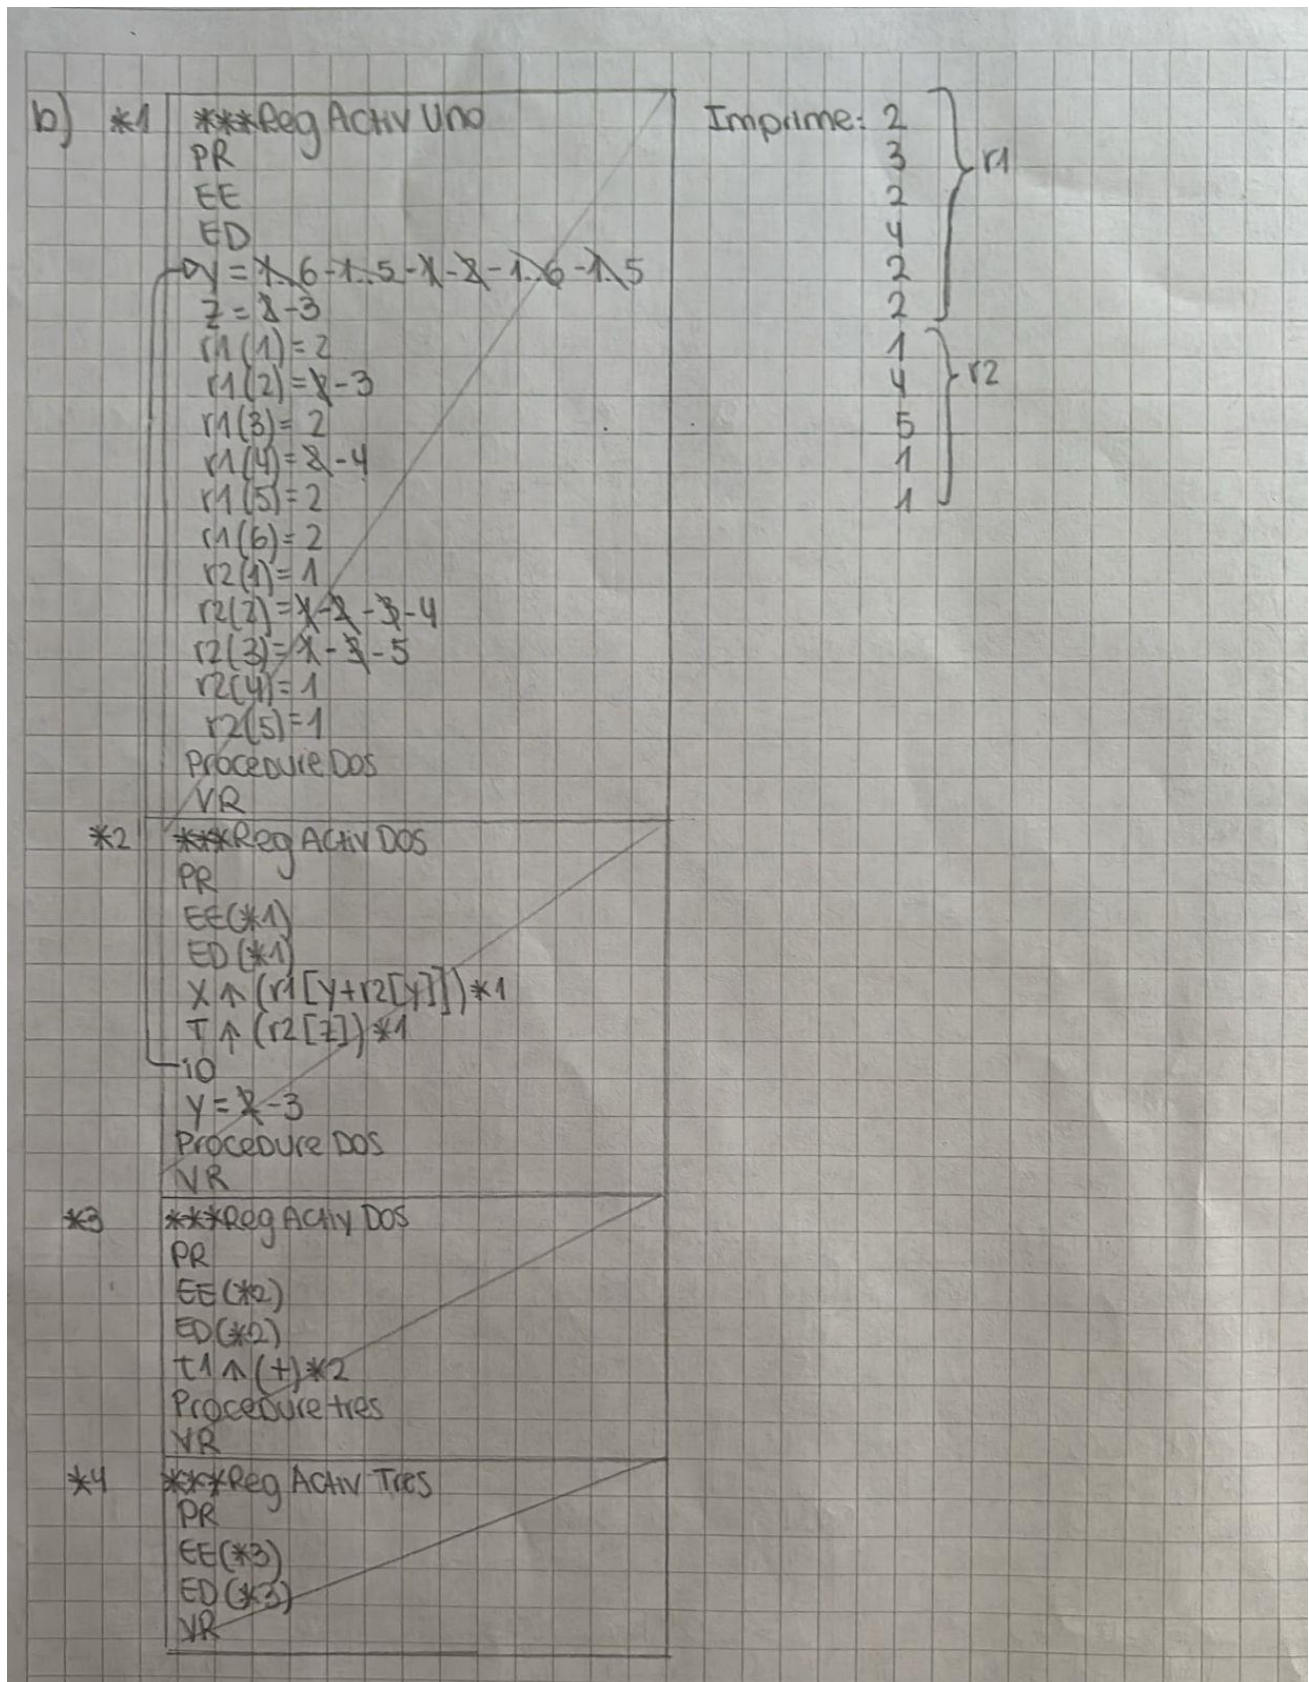 b) *1 ***Reg Activ Uno
PR
EE
ED
y = 1..6-1..5-1-2-1..6-1..5
z = 2-3
r1(1)=2
r1(2)=2-3
r1(3)=2
r1(4)=2-4
r1(5)=2
r1(6)=2
r2(1)=1
r2(2)=1-2-3-4
r2(3)=1-3-5
r2(4)=1
r2(5)=1
Procedure Dos
VR
*2 ***Reg Activ DOS
PR
EE(*1)
ED(*1)
X ↑ (r1[y+r2[y]])*1
T ↑ (r2[z])*1
io
y=2-3
Procedure Dos
VR
*3 ***Reg Activ DOS
PR
EE(*2)
ED(*2)
T1 ↑ (+)*2
Procedure tres
VR
*4 ***Reg Activ Tres
PR
EE(*3)
ED(*3)
VR
Imprime: 2
3
2
4
2
2
r1
1
4
5
1
1
r2